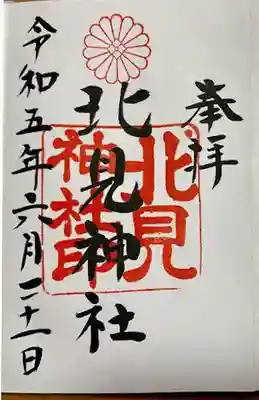 奉拝
北見神社
北見
神社印
令和五年六月二十一日